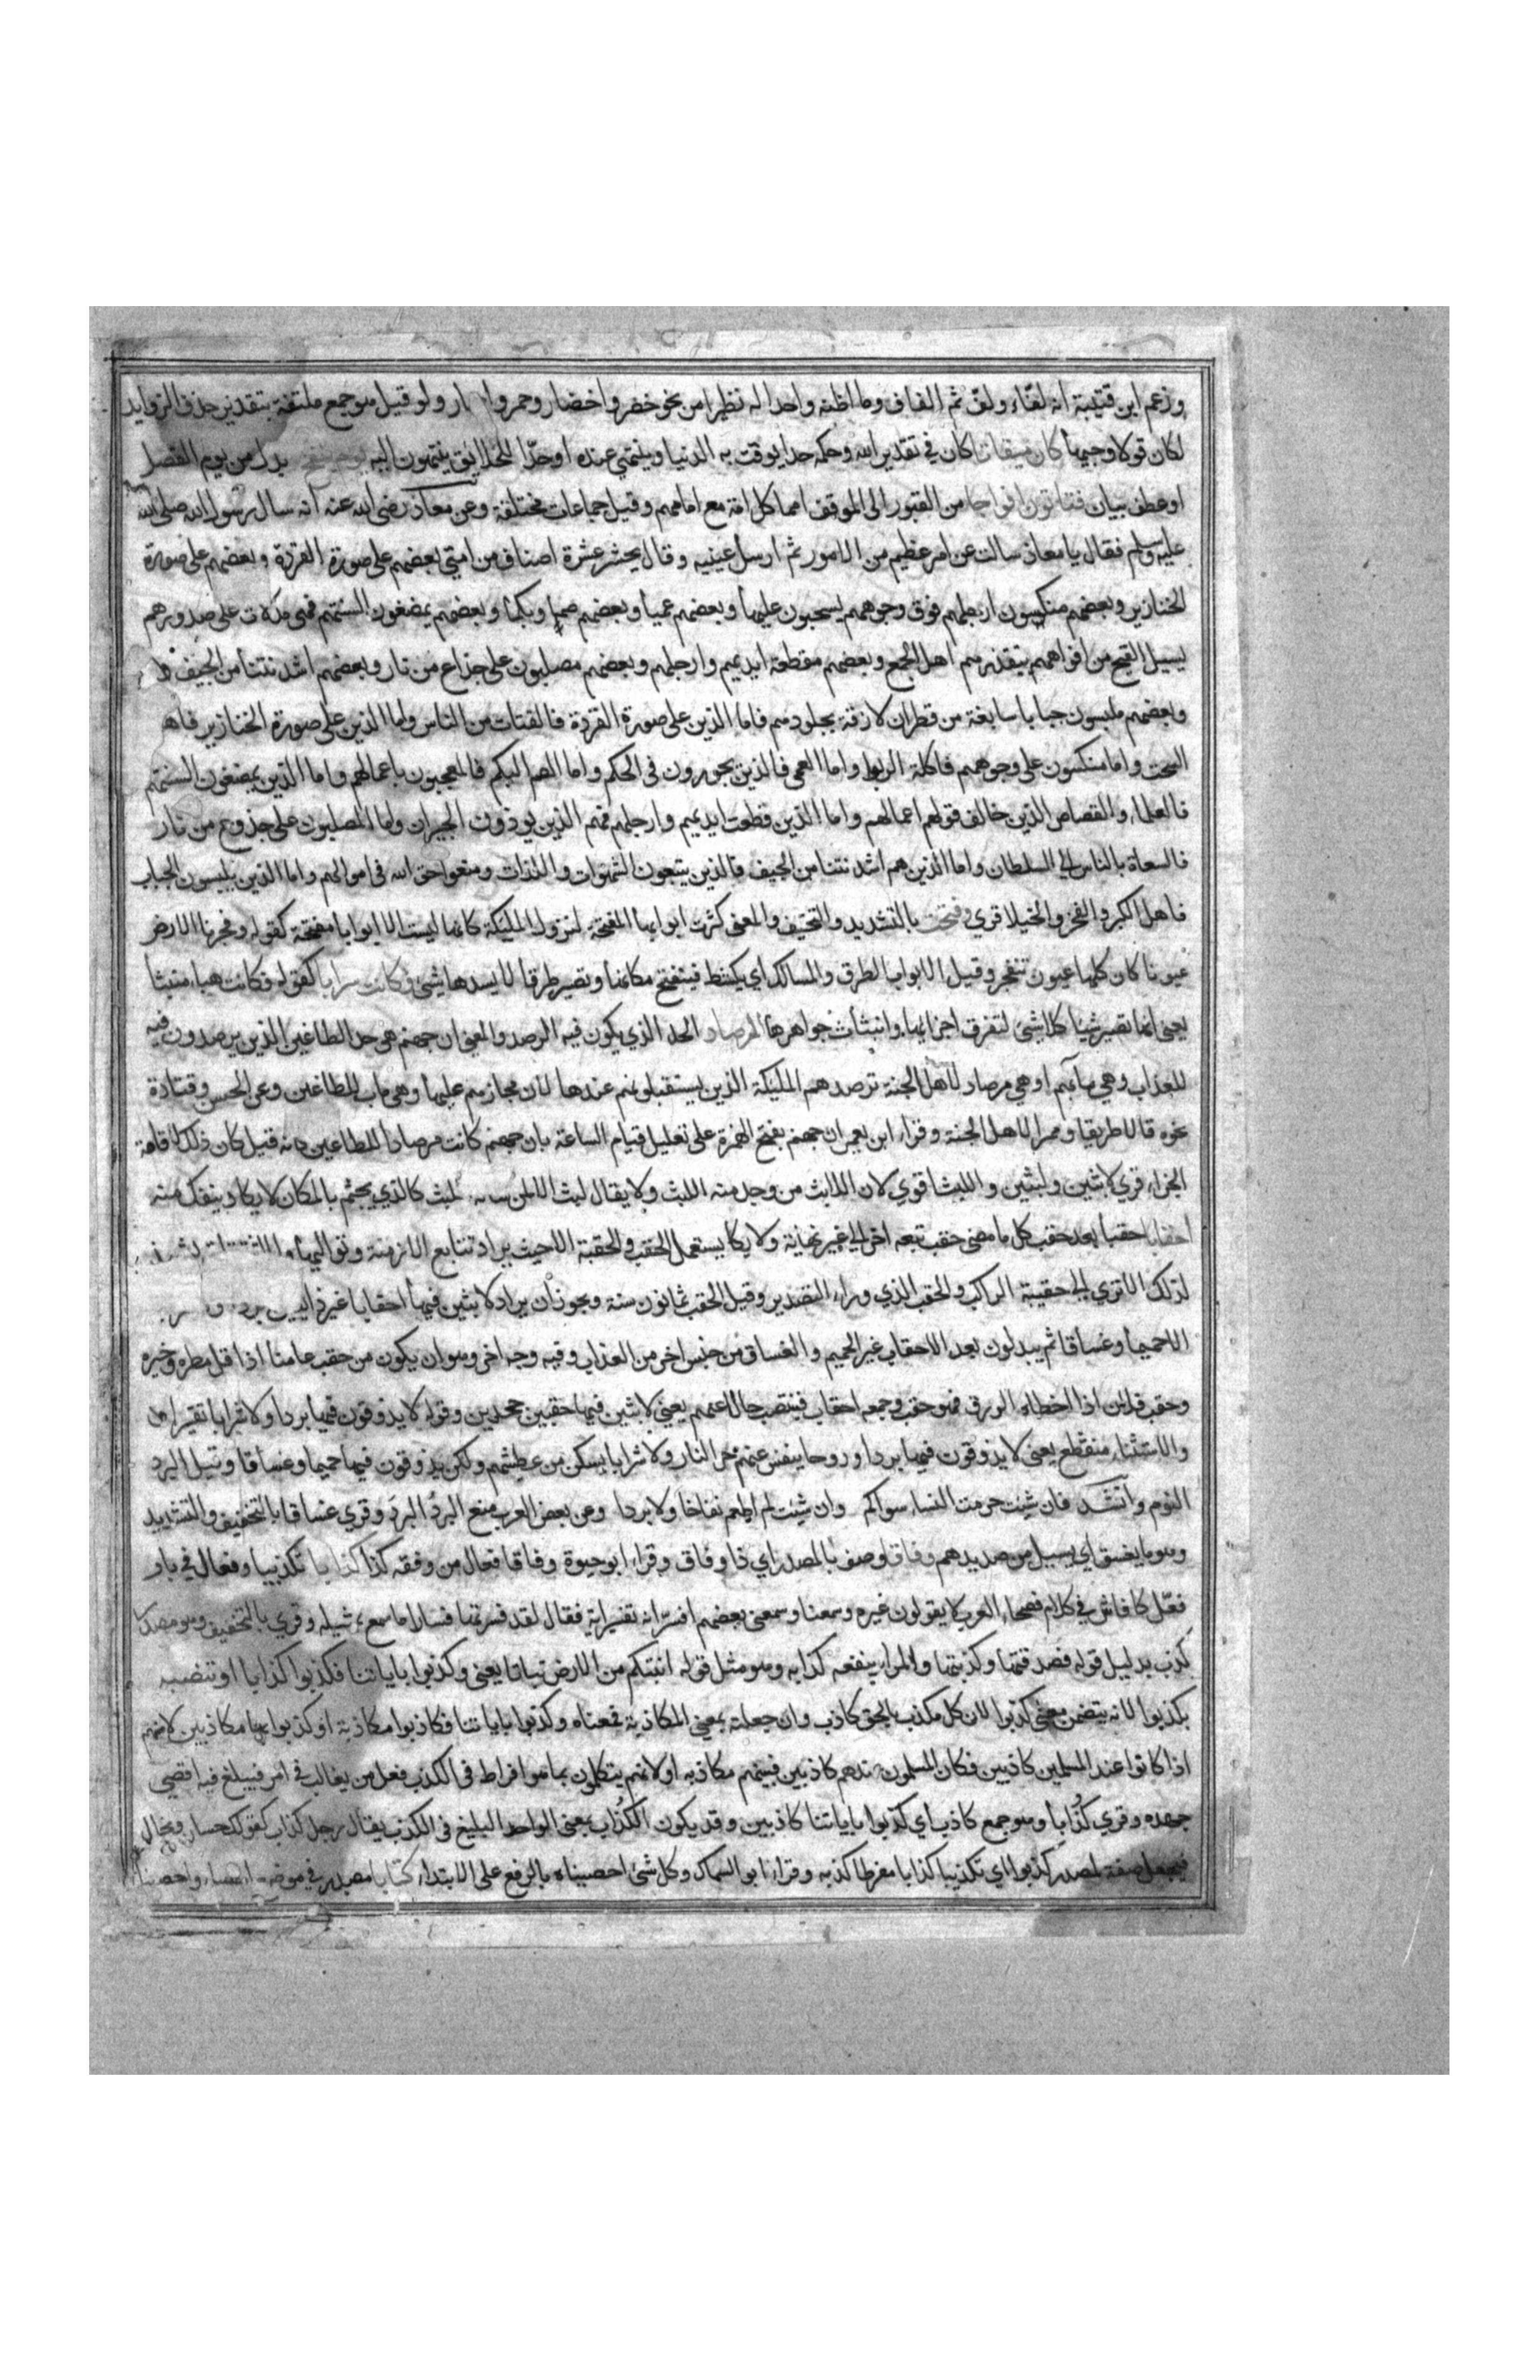 وزعم ابن قتيبة انه لفّاء ولفّ ثم الفاف وما اظنه واحدا له نظيرا من نحو خضر واخضار وحمر وا ار ولو قيل هو جمع ملتفة بتقدير حذف الزوايد
لكان قولا وجيها كان ميقاتا كان في تقدير الله وحكمه حدا يوقت به الدنيا وينتهي عنده او حدّا للخلائق ينتهون اليه يوم ينفخ بدل من يوم الفصل
او عطف بيان فتاتون افواجا من القبور الى الموقف امما كل امة مع امامهم وقيل جماعات مختلفة وعن معاذ رضى الله عنه انه سال رسول الله صلى الله
عليه وسلم فقال يا معاذ سالت عن امر عظيم من الامور ثم ارسل عينيه وقال يحشر عشرة اصناف من امتى بعضهم على صورة القردة وبعضهم على صورة
الخنازير وبعضهم منكسون ارجلهم فوق وجوههم يسحبون عليها وبعضهم عميا وبعضهم صما وبكما وبعضهم يمضغون السنتهم فهى مدلات على صدورهم
يسيل القيح من افواههم يتقذرهم اهل الجمع وبعضهم مقطعة ايديهم وارجلهم وبعضهم مصلبون على جذاع من نار وبعضهم اشد نتنا من الجيف
وبعضهم ملبسون جبابا سابغة من قطران لازقة بجلودهم فاما الذين على صورة القردة فالقتات من الناس واما الذين على صورة الخنازير فاهل
السحت واما منكسون على وجوههم فاكلة الربوا واما العمى فالذين يجورون فى الحكم واما الصم البكم فالمعجبون باعمالهم واما الذين يمضغون السنتهم
فالعلماء والقصاص الذين خالف قولهم اعمالهم واما الذين قطعت ايديهم وارجلهم فهم الذين يوذون الجيران واما المصلبون على جذوع من نار
فالسعاة بالناس الى السلطان واما الذين هم اشد نتنا من الجيف فالذين يتبعون الشهوات واللذات ومنعوا حق الله فى اموالهم واما الذين يلبسون الجباب
فاهل الكبر والفخر والخيلا قري وفتحت بالتشديد والتخفيف والمعنى كثرت ابوابها المفتحة لنزول المليكة كانها ليست الا ابوابا مفتحة كقوله وفجرنا الارض
عيونا كان كلها عيون تنفجر وقيل الابواب الطرق والمسالك اي يكشط فينفتح مكانها وتصير طرقا لا يسدها شئ وكانت سرابا كقوله فكانت هباء منبثا
يعنى انها تصير شيئا كلا شئ لتفرق اجزائها وانبثاث جواهرها المرصاد الحد الذي يكون فيه الرصد والمعنى ان جهنم هى حد الطاغين الذين يرصدون فيه
للعذاب وهي مآبهم او هي مرصاد لاهل الجنة ترصدهم المليكة الذين يستقبلونهم عندها لان مجازهم عليها وهى ماب للطاغين وعن الحسن وقتادة
نحوه قالا طريقا وممرا لاهل الجنة وقراء ابن يعمر ان جهنم بفتح الهمزة على تعليل قيام الساعة بان جهنم كانت مرصادا للطاغين كانه قيل كان ذلك لاقامة
الجزاء قري لابثين ولبثين واللبث اقوي لان اللابث من وجد منه اللبث ولا يقال لبث الا لمن شانه اللبث كالذي يجثم بالمكان لا يكاد ينفك منه
احقابا حقبا بعد حقب كل ما مضى حقب تبعه اخر الى غير نهاية ولا يكاد يستعمل الحقب والحقبة الا حيث يراد تتابع الازمنة وتواليها
لذلك الا تري الى حقيبة الراكب والحقب الذي وراء التصدير وقيل الحقب ثمانون سنة ويجوز ان يراد لابثين فيها احقابا غير ذايقين
الا حميما وغساقا ثم يبدلون بعد الاحقاب غير الحميم والغساق من جنس اخر من العذاب وفيه وجه اخر وهو ان يكون من حقب عامنا اذا قل مطره وخيره
وحقب فلان اذا اخطاء الرزق فهو حقب وجمعه احقاب فينتصب حالا عنهم يعني لابثين فيها حقبين جحدين وقوله لا يذوقون فيها بردا ولا شرابا تفسير له
والاستثناء منقطع يعنى لا يذوقون فيها بردا وروحا ينفس عنهم حر النار ولا شرابا يسكن من عطشهم ولكن يذوقون فيها حميما وغساقا وقيل البرد
النوم وانشد فان شيت حرمت النساء سواكم وان شيت لم اطعم نقاخا ولا بردا وعن بعض العرب منع البردُ البردَ وقري غساقا بالتخفيف والتشديد
وهو ما يغسق اي يسيل من صديدهم وفاقا وصف بالمصدر اي ذا وفاق وقراء ابو حيوة وفاقا فعال من وفقه كذا كذابا تكذيبا وفعال في باب
فعّل كلها فاش في كلام فصحاء العرب لا يقولون غيره وسمعنا وسمعنى بعضهم افسر اية فقال لقد فسرتها فسارا ما سمع بمثله وقري بالتخفيف وهو مصدر
كذب بدليل قوله فصدقتها وكذبتها والمرء ينفعه كذابه وهو مثل قوله انبتكم من الارض نباتا يعنى وكذبوا باياتنا فكذبوا كذابا او تنصبه
بكذبوا لانه يتضمن معنى كذبوا لان كل مكذب بالحق كاذب وان جعلته بمعني المكاذبة فمعناه وكذبوا باياتنا فكاذبوا مكاذبة او كذبوا بها مكاذبين لانهم
اذا كانوا عند المسلمين كاذبين وكان المسلمون عندهم كاذبين فبينهم مكاذبه او لانهم يتكلمون بما هو افراط فى الكذب فعل من يغالب في امر فيبلغ فيه اقصي
جهده وقري كُذّابا وهو جمع كاذب اي كذبوا باياتنا كاذبين وقد يكون الكُذّاب بمعنى الواحد البليغ فى الكذب يقال رجل كذاب كقولك حسان وبخال
فيجعل صفة لمصدر كذبوا اي تكذيبا كذابا مفرطا كذبه وقراء ابو السماك وكل شئ احصيناه بالرفع على الابتداء كتابا مصدر في موضع احصاء واحصينا